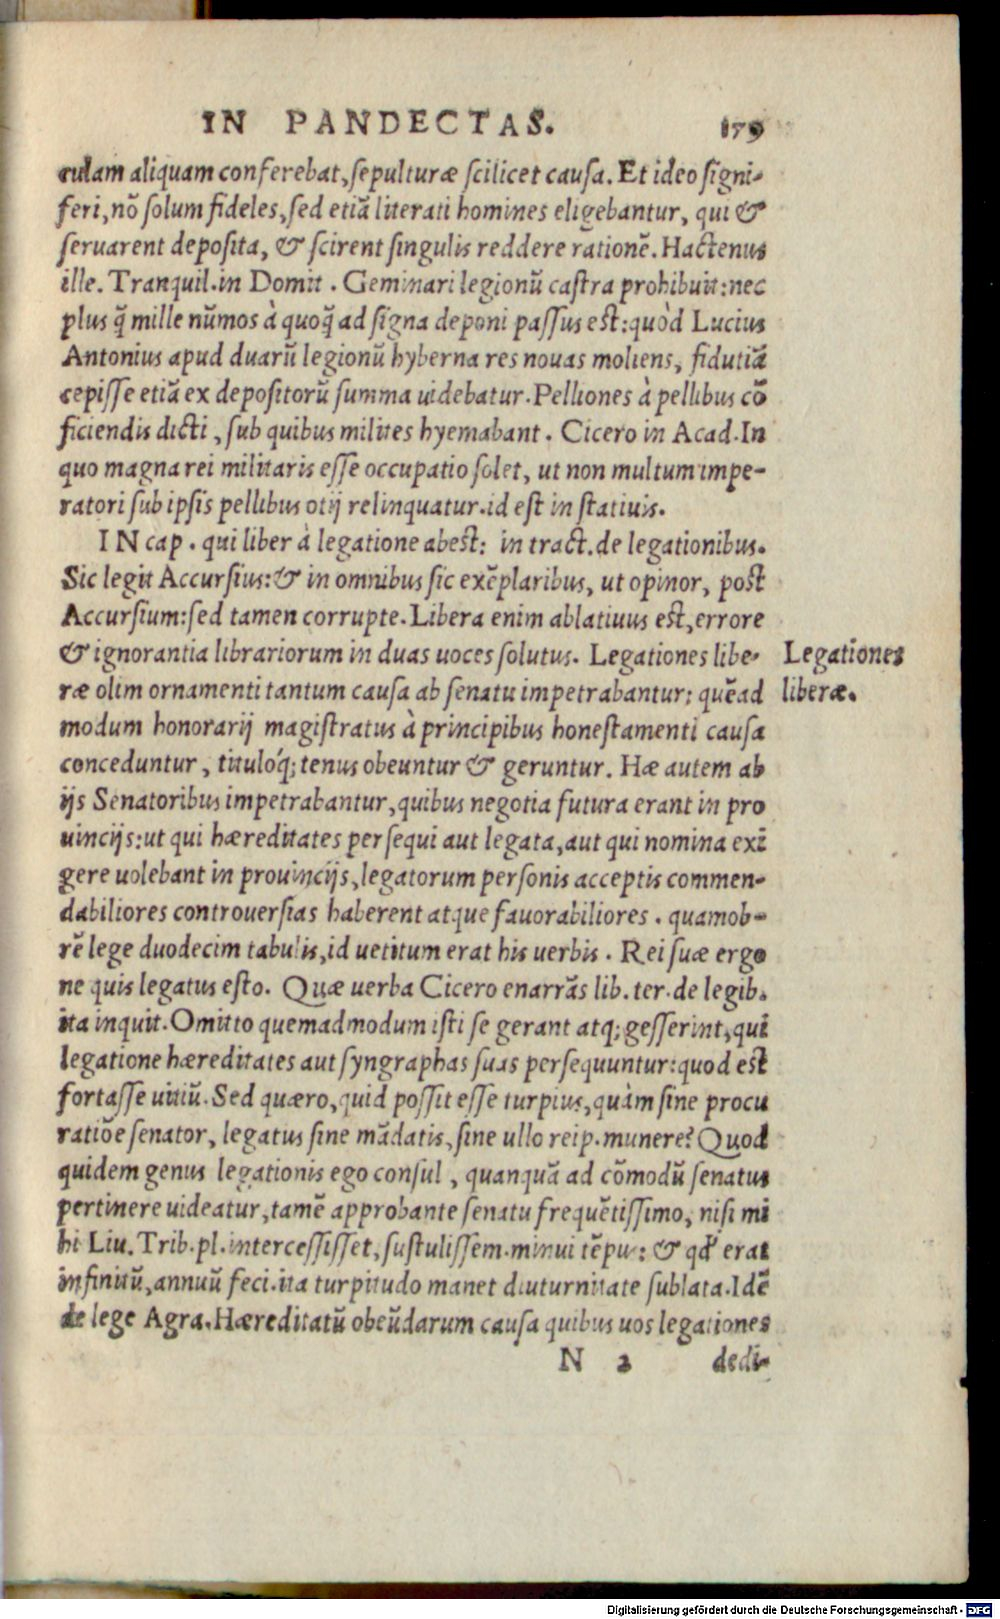 IN PANDECTAS. 179
culam aliquam conferebat, sepulturæ scilicet causa. Et ideo signi-
feri, nõ solum fideles, sed etiã literati homines eligebantur, qui &
seruarent deposita, & scirent singulis reddere rationẽ. Hactenus
ille. Tranquil. in Domit. Geminari legionũ castra prohibuit: nec
plus q̃ mille nũmos à quoq̃ ad signa deponi passus est: quòd Lucius
Antonius apud duarũ legionũ hyberna res nouas moliens, fidutiã
cepisse etiã ex depositorũ summa uidebatur. Pelliones à pellibus cõ
ficiendis dicti, sub quibus milites hyemabant. Cicero in Acad. In
quo magna rei militaris esse occupatio solet, ut non multum impe-
ratori sub ipsis pellibus otij relinquatur. id est in statiuis.
IN cap. qui liber à legatione abest: in tract. de legationibus.
Sic legit Accursius: & in omnibus sic exẽplaribus, ut opinor, post
Accursium: sed tamen corrupte. Libera enim ablatiuus est, errore
& ignorantia librariorum in duas uoces solutus. Legationes libe-
ræ olim ornamenti tantum causa ab senatu impetrabantur: quẽad
modum honorarij magistratus à principibus honestamenti causa
conceduntur, tituloq́; tenus obeuntur & geruntur. Hæ autem ab
ijs Senatoribus impetrabantur, quibus negotia futura erant in pro
uincijs: ut qui hæreditates persequi aut legata, aut qui nomina exĩ
gere uolebant in prouincijs, legatorum personis acceptis commen-
dabiliores controuersias haberent atque fauorabiliores. quamob-
rẽ lege duodecim tabulis, id uetitum erat his uerbis. Rei suæ ergo
ne quis legatus esto. Quæ uerba Cicero enarrãs lib. ter. de legib.
ita inquit. Omitto quemadmodum isti se gerant atq; gesserint, qui
legatione hæreditates aut syngraphas suas persequuntur: quod est
fortasse uitiũ. Sed quæro, quid possit esse turpius, quàm sine procu
ratiõe senator, legatus sine mãdatis, sine ullo reip. munere? Quod
quidem genus legationis ego consul, quanquã ad cõmodũ senatus
pertinere uideatur, tamẽ approbante senatu frequẽtissimo, nisi mi
hi Liu. Trib. pl. intercessisset, sustulissem. minui tẽpus: & qđ erat
infinitũ, annuũ feci. ita turpitudo manet diuturnitate sublata. Idẽ
de lege Agra. Hæreditatũ obeũdarum causa quibus uos legationes
N 2 dedi-
Legationes
liberæ.
Digitalisierung gefördert durch die Deutsche Forschungsgemeinschaft - DFG